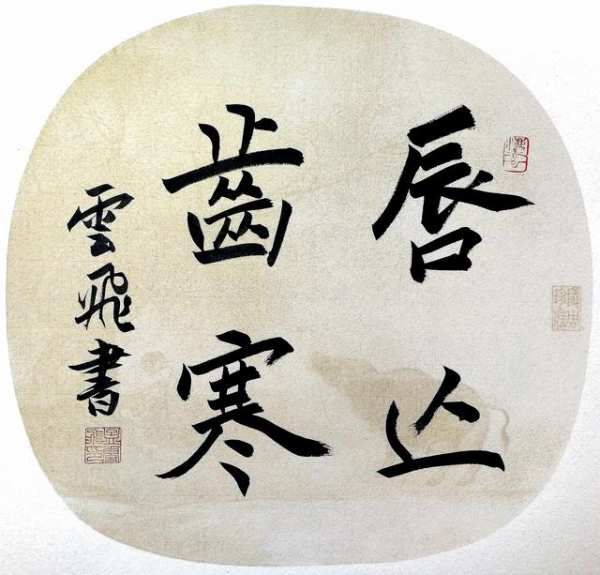 唇亾
齒寒
雲飛書